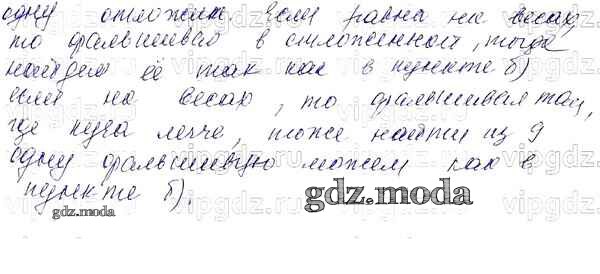 одну отложим, если равна на весах,
то фальшивая в отложенной, тогда
найдем её так как в пункте б)
если на весах, то фальшивая там,
где куча легче, тоже найти из 9
одну фальшивую можем как в
пункте б).
gdz.moda
gdz.moda
vipgdz.ru